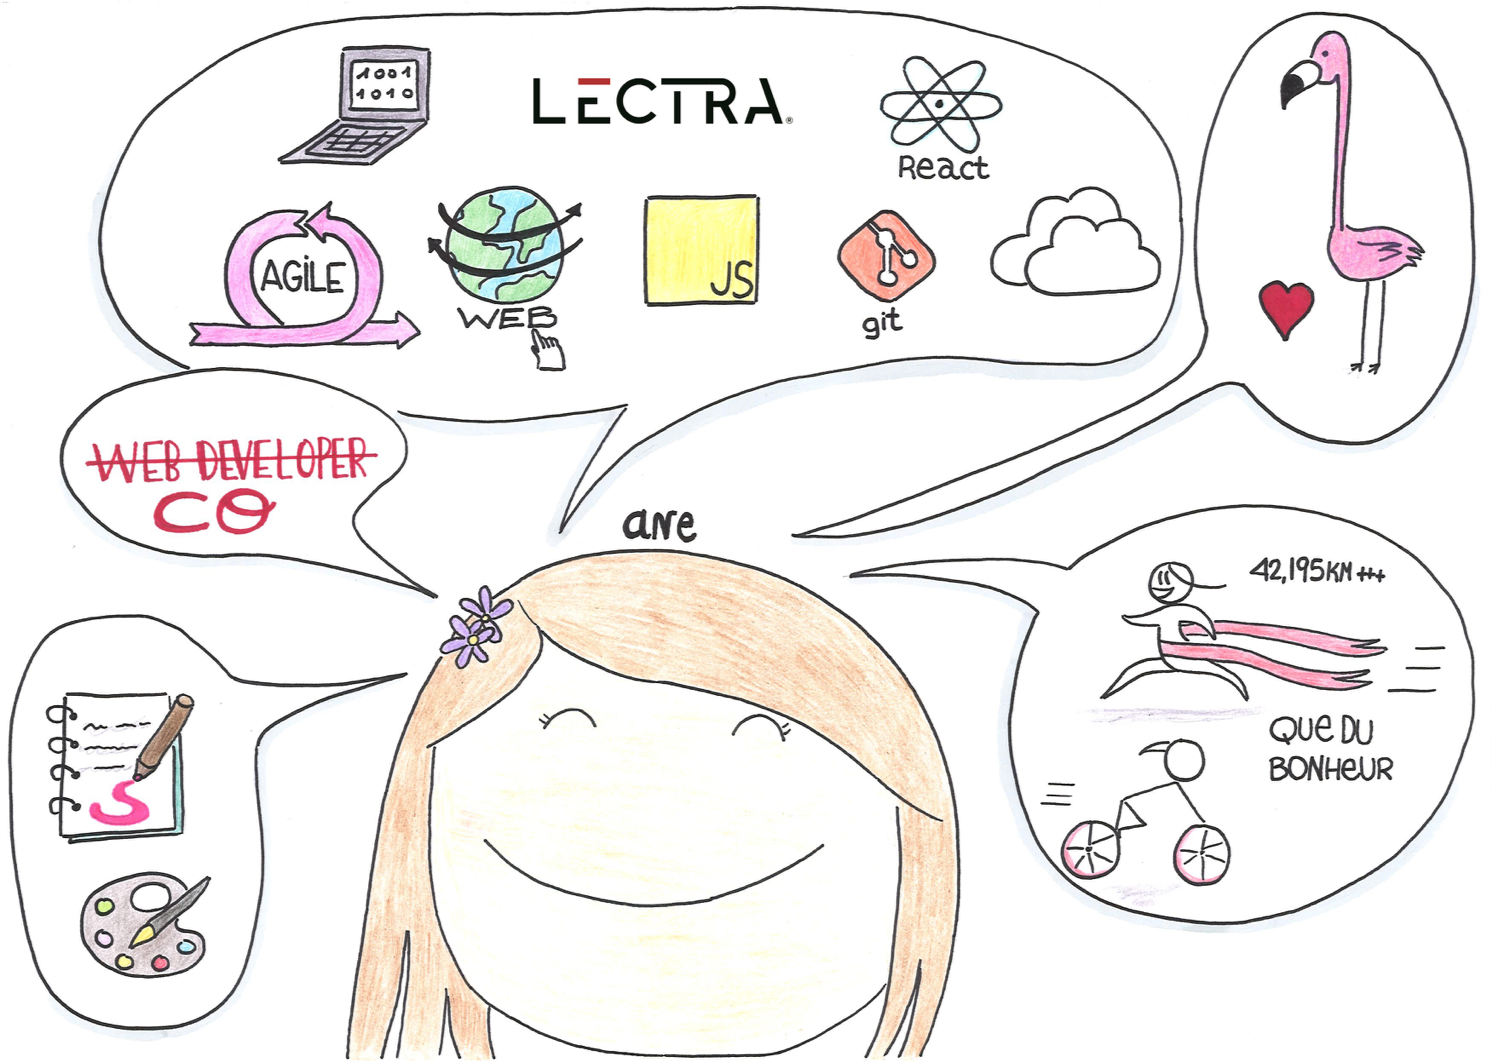 1001
1010
LECTRA®
React
AGiLE
WEB
JS
git
WEB DEVELOPER
CO
ane
42,195KM +++
QUE DU
BONHEUR
S